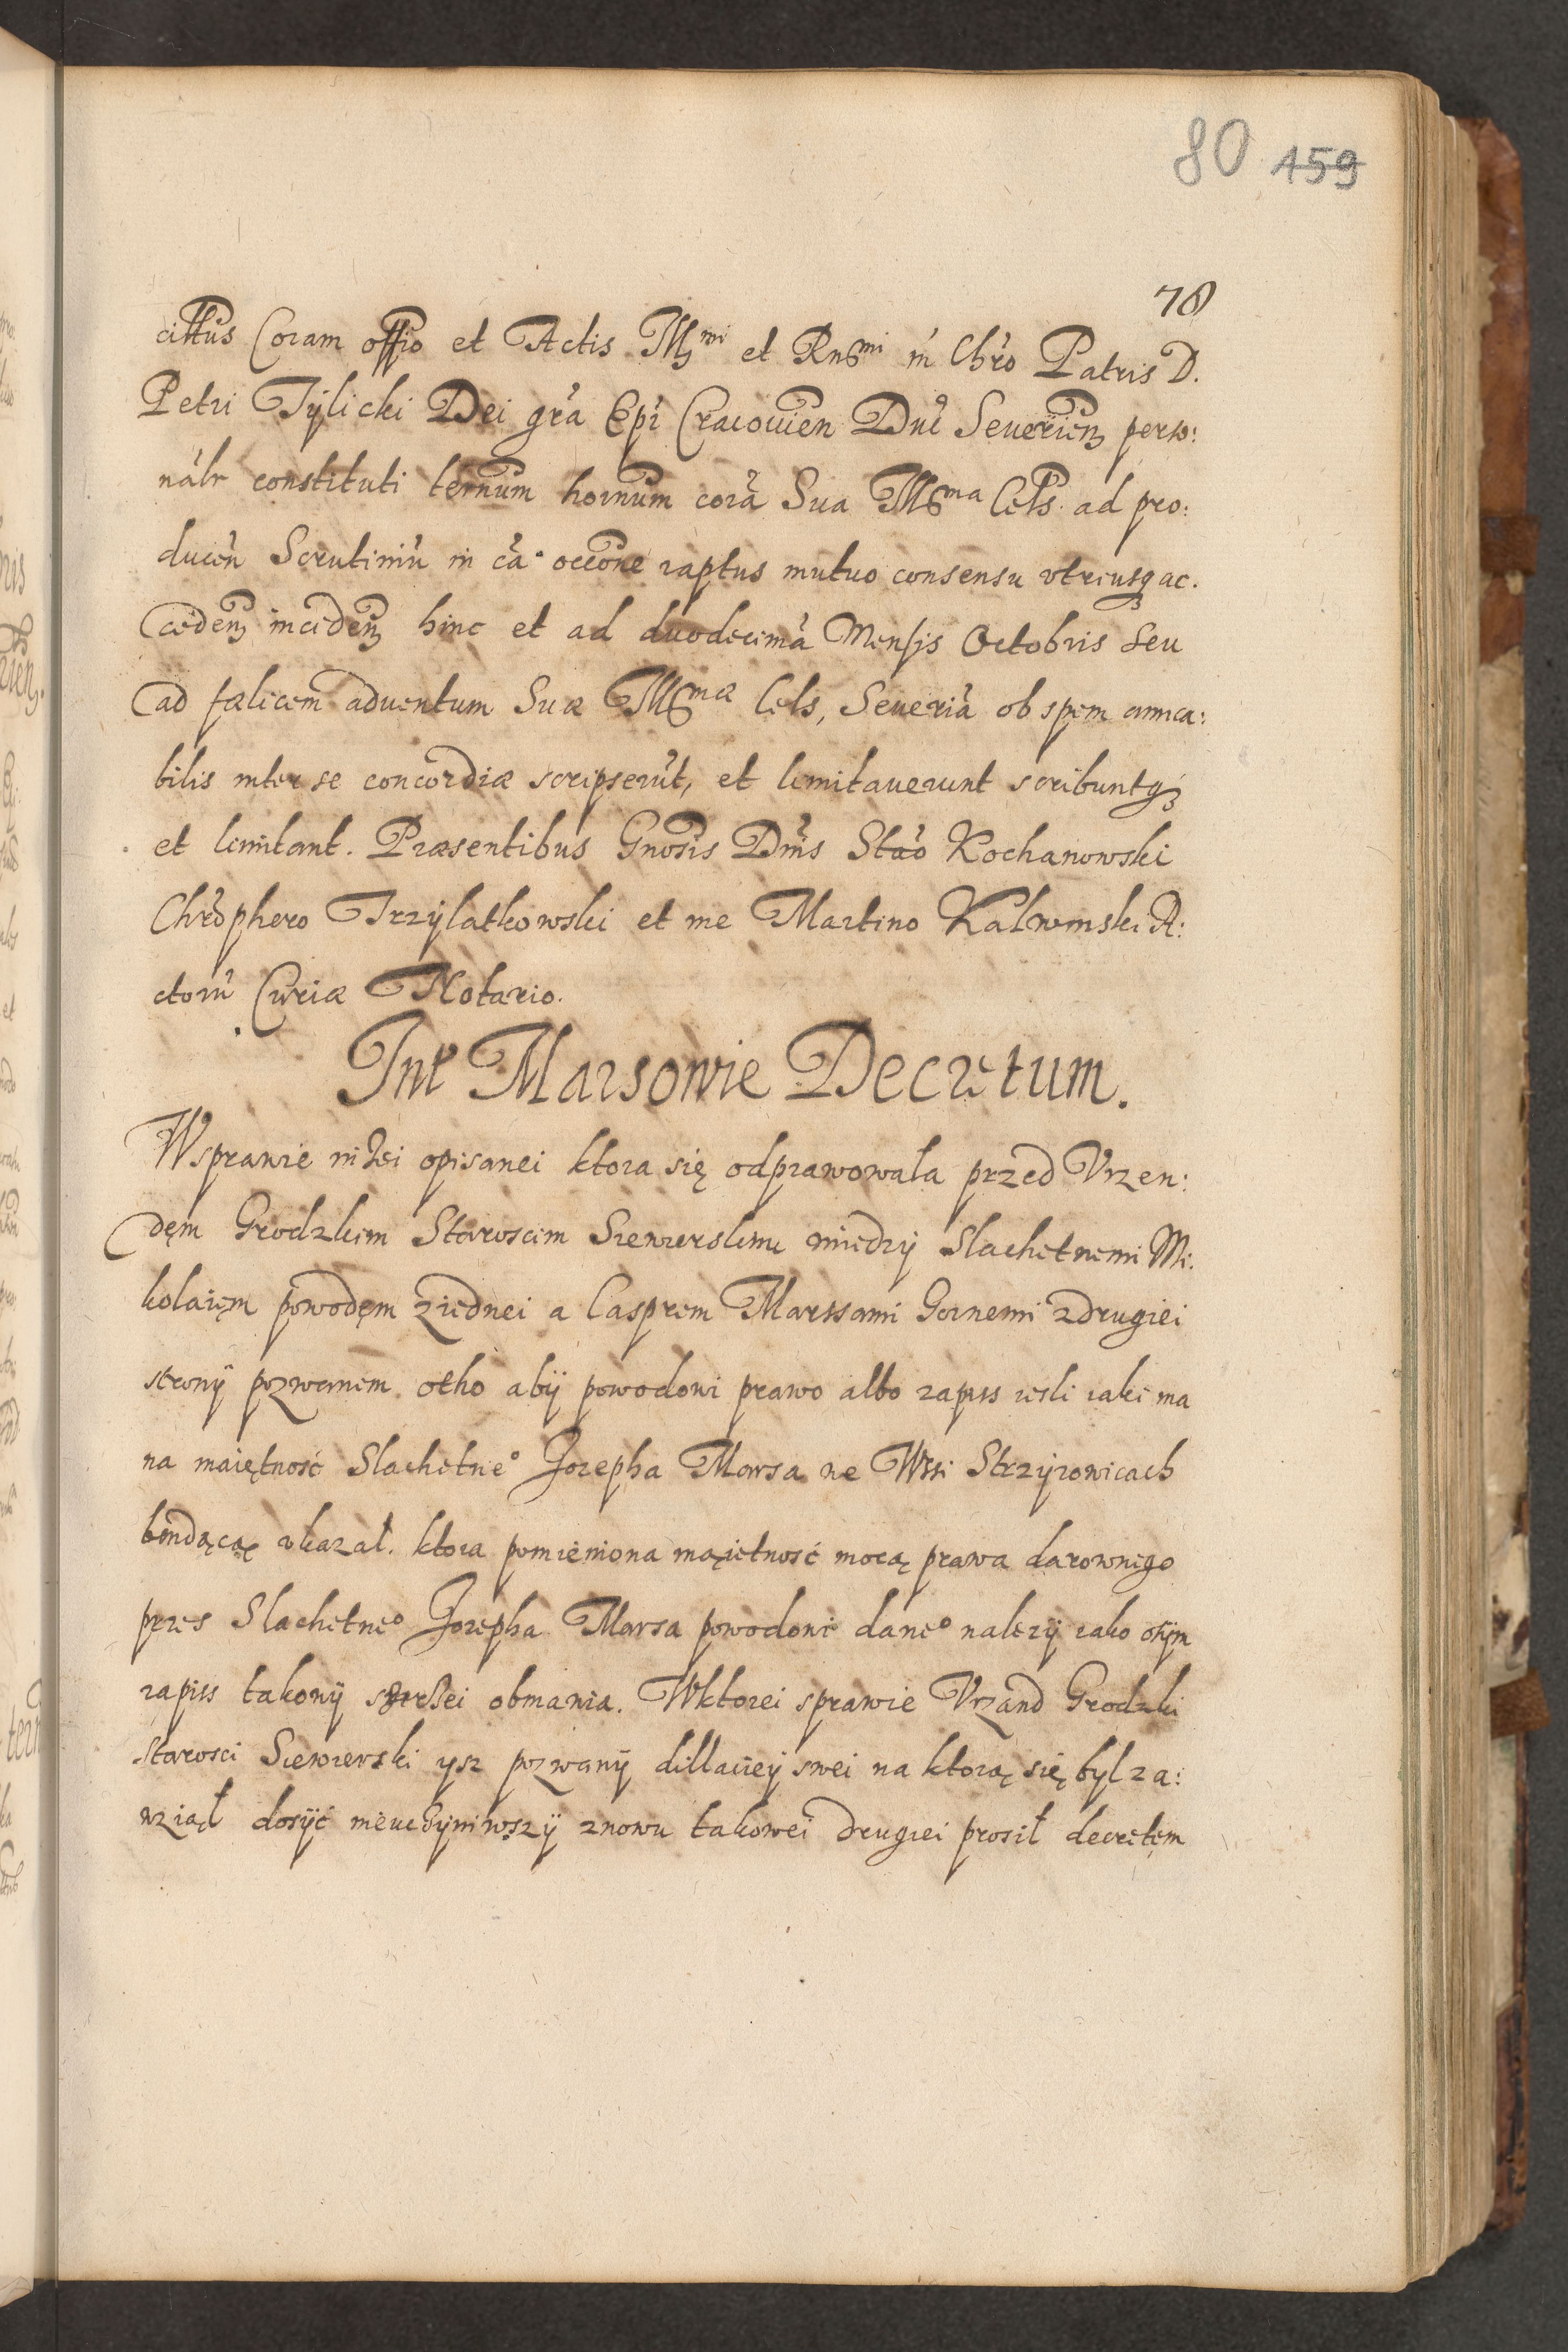 80 159
78
cittus Coram offio et Actis Illmi et Rndmi in Chro Patris D.
Petri Tÿlicki Dei gra Epi Cracouien Dni Seuerien perso:
nalr constituti ternum hornum cora Sua Illma Cels. ad pro:
ducen Scrutiniu in ca occone raptus mutuo consensu vtriusq ac.
ad duodecima Mensis Octobris seu
ad fælicem aduentum Suæ Illmæ Cels, Seueria ob spem amica:
bilis inter se concordiæ scripserut, et limitauerunt scribuntq
et limitant. Præsentibus Gnosis Dnis Stao Kochanowski
Chrophero Trzÿlatkowski et me Martino Kalwinski A:
ctoru Curiæ Notario.
Int Marsowie Decretum.
Wsprawie niżei opisanei ktora się odprawowała przed Vrzen:
dem Grodzkim Staroscim Siewierskim miedzÿ Slachetnemi Mi:
kolaiem powodem ziednei a Casprem Marssami Gornemi zdrugiei
stronÿ pozwanem otho abÿ powodowi prawo albo zapiss iesli iaki ma
na maiętność Slachetneo Jozepha Marsa ne Wssi Strzÿzowicach
bendącąc vkazał. ktora pomieniona maiętność mocą prawa darownego
przes Slachetneo Jozepha Marsa powodowi daneo należÿ iako otÿm
zapiss takowÿ szerzei obmawia. Wktorei sprawie Vrzand Grodzki
Starosci Siewierski ysz pozwanÿ dillaciei swei na ktorą się bÿl za:
wziął dosÿć nieuczÿniwszÿ znowu takowei drugiei prosił decretem